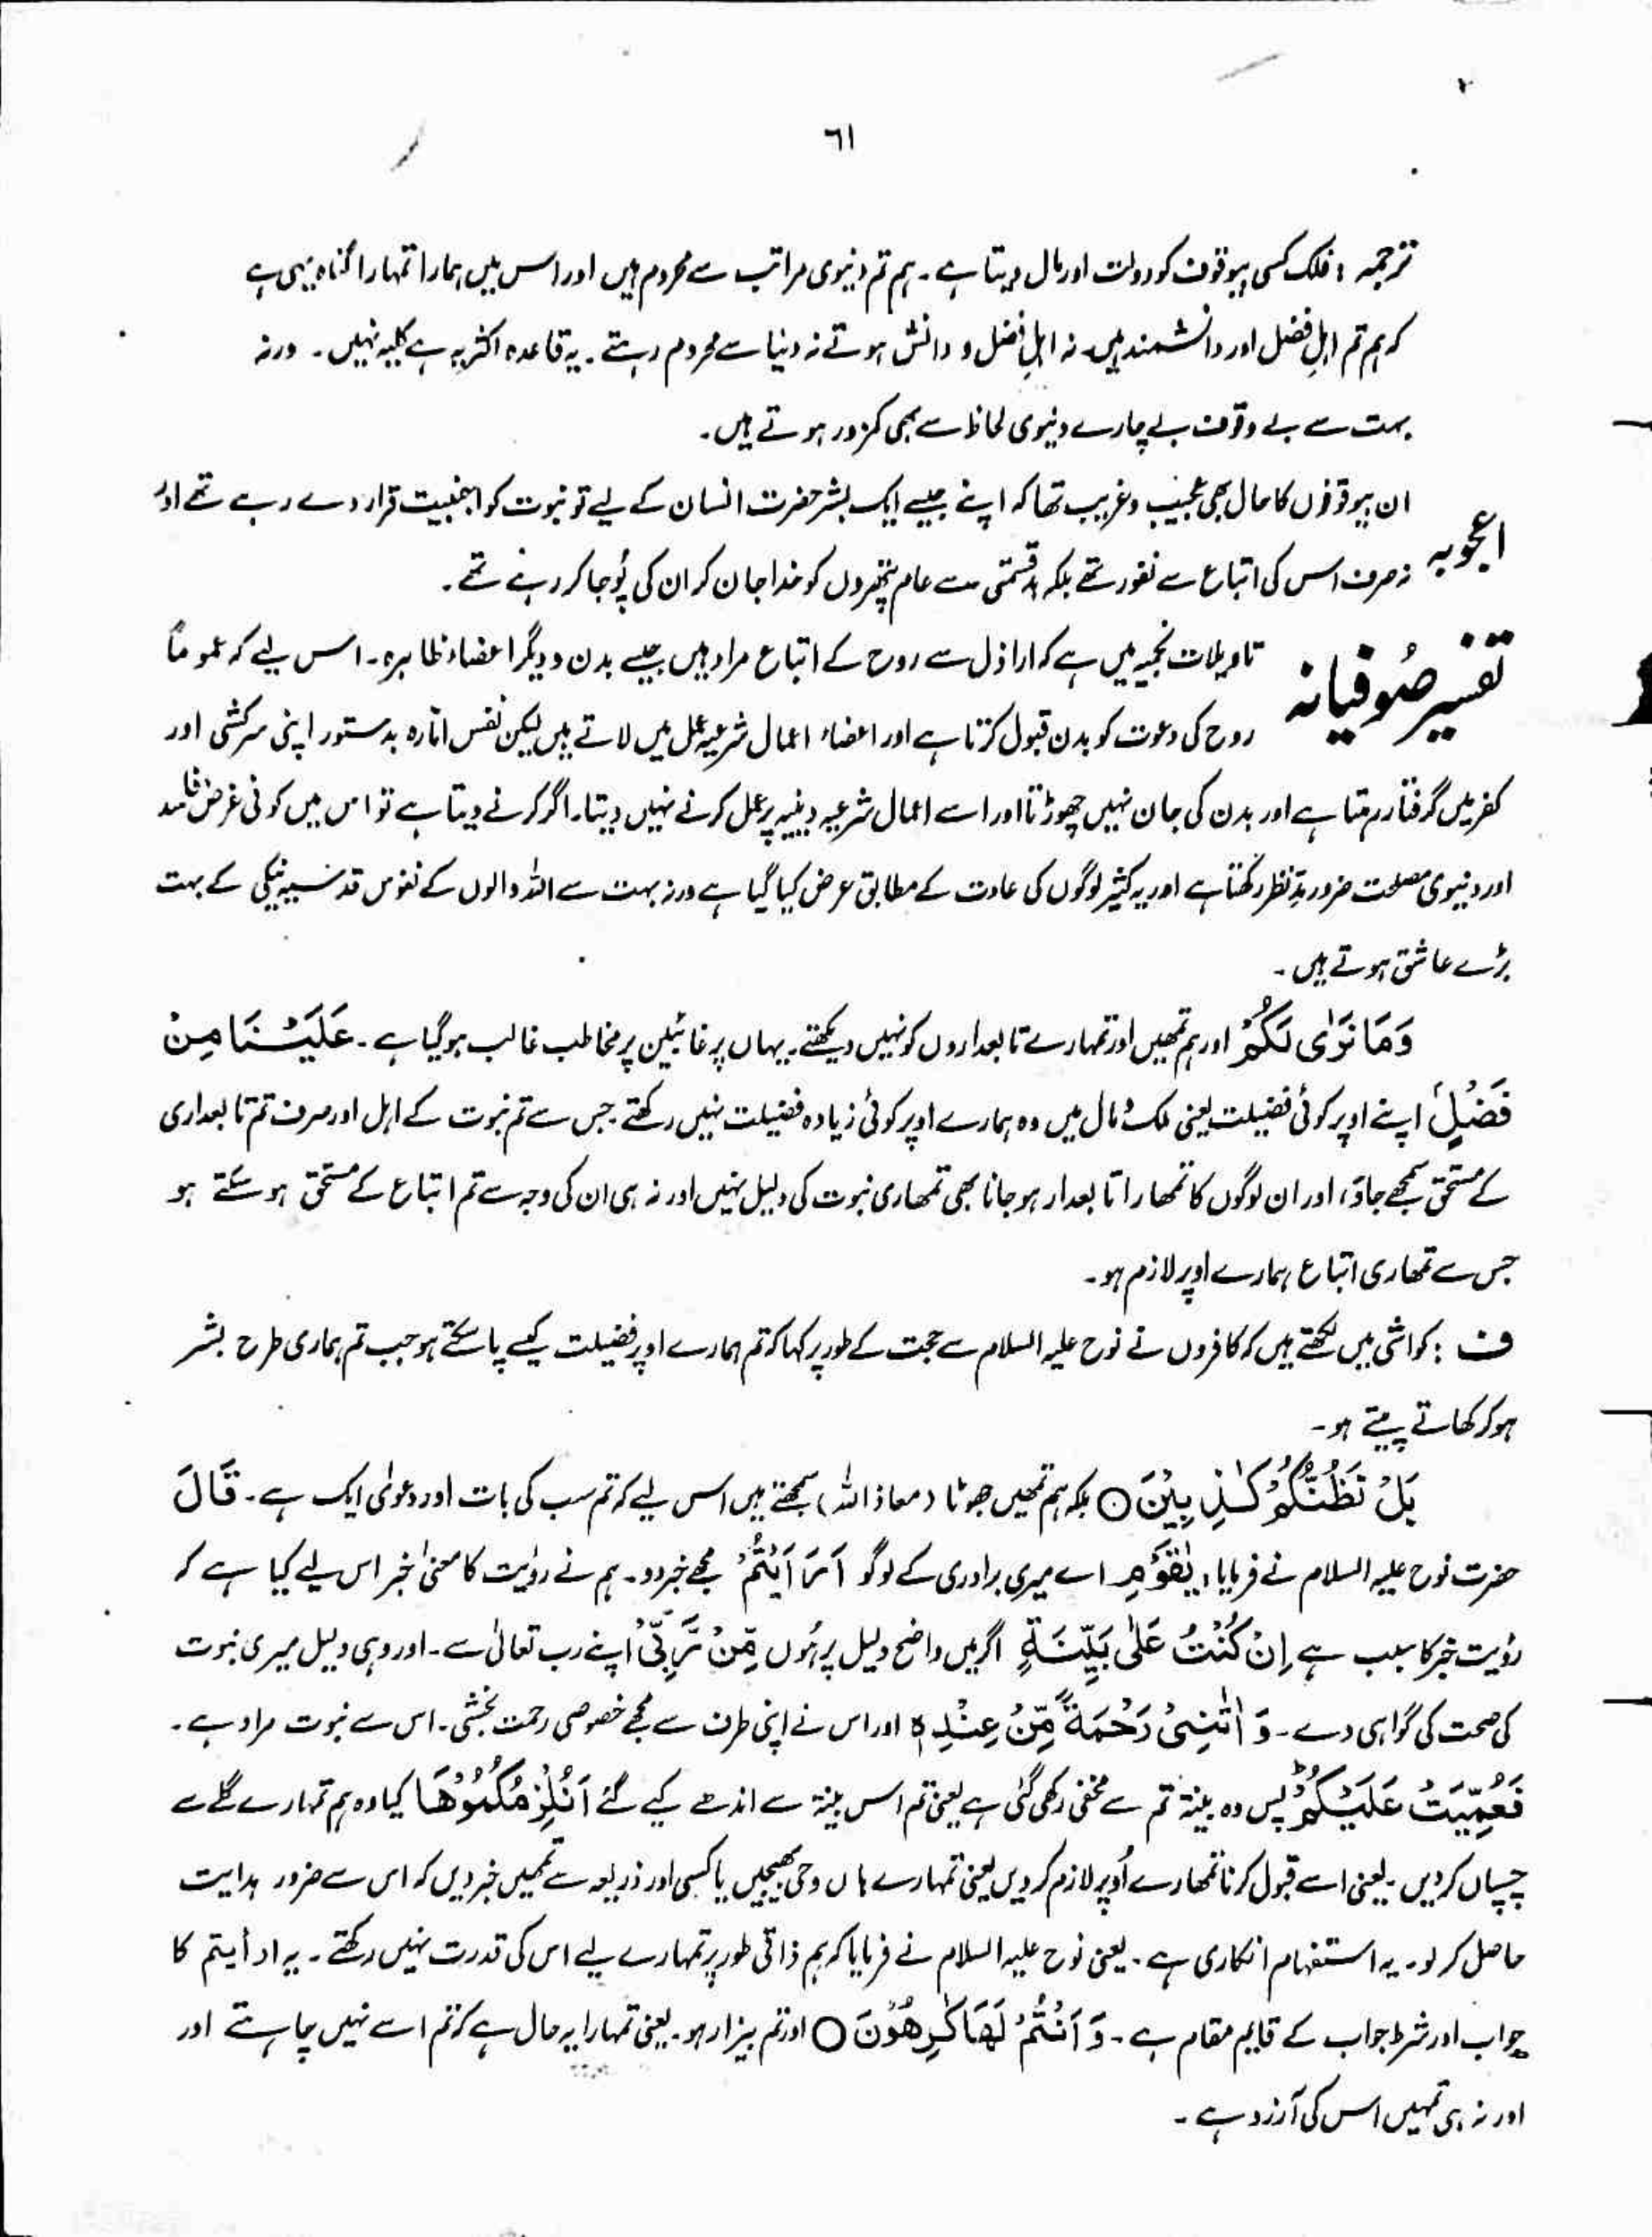 ٦١
ترجمہ : فلک کسی بیوقوف کو دولت اور مال دیتا ہے۔ ہم تم دنیوی مراتب سے محروم ہیں اور اس میں ہمارا تمہارا گناہ یہی ہے
کہ ہم تم اہلِ فضل اور دانشمند ہیں۔ نہ اہلِ فضل و دانش ہوتے نہ دنیا سے محروم رہتے۔ یہ قاعدہ اکثریہ ہے کلیہ نہیں۔ ورنہ
بہت سے بے وقوف بے چارے دنیوی لحاظ سے بھی کمزور ہوتے ہیں۔
اعجوبہ ان بیوقوفوں کا حال بھی عجیب و غریب تھا کہ اپنے جیسے ایک بشر حضرت انسان کے لیے تو نبوت کو اجنبیت قرار دے رہے تھے اور
نہ صرف اس کی اتباع سے نفور تھے بلکہ بدقسمتی سے عام پتھروں کو خدا جان کر ان کی پُوجا کر رہے تھے۔
تفسیر صُوفیانہ تاویلات نجمیہ میں ہے کہ اراذل سے روح کے اتباع مراد ہیں جیسے بدن و دیگر اعضاء ظاہرہ۔ اس لیے کہ عموماً
روح کی دعوت کو بدن قبول کرتا ہے اور اعضاء اعمال شرعیہ عمل میں لاتے ہیں لیکن نفس امّارہ بدستور اپنی سرکشی اور
کفر میں گرفتار رہتا ہے اور بدن کی جان نہیں چھوڑتا اور اسے اعمال شرعیہ دینیہ پر عمل کرنے نہیں دیتا۔ اگر کرنے دیتا ہے تو اس میں کوئی غرض فاسد
اور دنیوی مصلحت ضرور مدِّنظر رکھتا ہے اور یہ کثیر لوگوں کی عادت کے مطابق عرض کیا گیا ہے ورنہ بہت سے اللہ والوں کے نفوس قدسیہ نیکی کے بہت
بڑے عاشق ہوتے ہیں۔
وَمَا نَرٰی لَكُمْ اور ہم تمھیں اور تمہارے تابعداروں کو نہیں دیکھتے۔ یہاں پر غائبین پر مخاطب غالب ہوگیا ہے۔ عَلَيْنَا مِنْ
فَضْلٍ اپنے اوپر کوئی فضیلت یعنی ملک و مال میں وہ ہمارے اوپر کوئی زیادہ فضیلت نہیں رکھتے جس سے تم نبوت کے اہل اور صرف تم تابعداری
کے مستحق سمجھے جاؤ، اور ان لوگوں کا تمھارا تابعدار ہوجانا بھی تمھاری نبوت کی دلیل نہیں اور نہ ہی ان کی وجہ سے تم اتباع کے مستحق ہو سکتے ہو
جس سے تمھاری اتباع ہمارے اوپر لازم ہو۔
ف : کواشی میں لکھتے ہیں کہ کافروں نے نوح علیہ السلام سے حجت کے طور پر کہا کہ تم ہمارے اوپر فضیلت کیسے پاسکتے ہو جب تم ہماری طرح بشر
ہو کر کھاتے پیتے ہو۔
بَلْ نَظُنُّكُمْ كٰذِبِيْنَ ○ بلکہ ہم تمھیں جھوٹا (معاذ اللہ) سمجھتے ہیں اس لیے کہ تم سب کی بات اور دعوٰی ایک ہے۔ قَالَ
حضرت نوح علیہ السلام نے فرمایا، يٰقَوْمِ اے میری برادری کے لوگو اَرَاَيْتُمْ مجھے خبر دو۔ ہم نے رؤیت کا معنیٰ خبر اس لیے کیا ہے کہ
رؤیت خبر کا سبب ہے اِنْ كُنْتُ عَلٰى بَيِّنَةٍ اگر میں واضح دلیل پر ہُوں مِّنْ رَّبِّيْ اپنے رب تعالیٰ سے۔ اور وہی دلیل میری نبوت
کی صحت کی گواہی دے۔ وَ اٰتٰنِيْ رَحْمَةً مِّنْ عِنْدِهٖ اور اس نے اپنی طرف سے مجھے خصوصی رحمت بخشی۔ اس سے نبوت مراد ہے۔
فَعُمِّيَتْ عَلَيْكُمْ ؕ پس وہ بینۃ تم سے مخفی رکھی گئی ہے یعنی تم اس بینۃ سے اندھے کیے گئے اَنُلْزِمُكُمُوْهَا کیا وہ ہم تمہارے گلے سے
چسپاں کر دیں۔ یعنی اسے قبول کرنا تمھارے اُوپر لازم کر دیں یعنی تمہارے ہاں وحی بھیجیں یا کسی اور ذریعہ سے تمہیں خبر دیں کہ اس سے ضرور ہدایت
حاصل کرلو۔ یہ استفہام انکاری ہے۔ یعنی نوح علیہ السلام نے فرمایا کہ ہم ذاتی طور پر تمہارے لیے اس کی قدرت نہیں رکھتے۔ یہ ارأیتم کا
جواب اور شرط جواب کے قایم مقام ہے۔ وَ اَنْتُمْ لَهَا كٰرِهُوْنَ ○ اور تم بیزار ہو۔ یعنی تمہارا یہ حال ہے کہ تم اسے نہیں چاہتے اور
اور نہ ہی تمہیں اس کی آرزو ہے۔